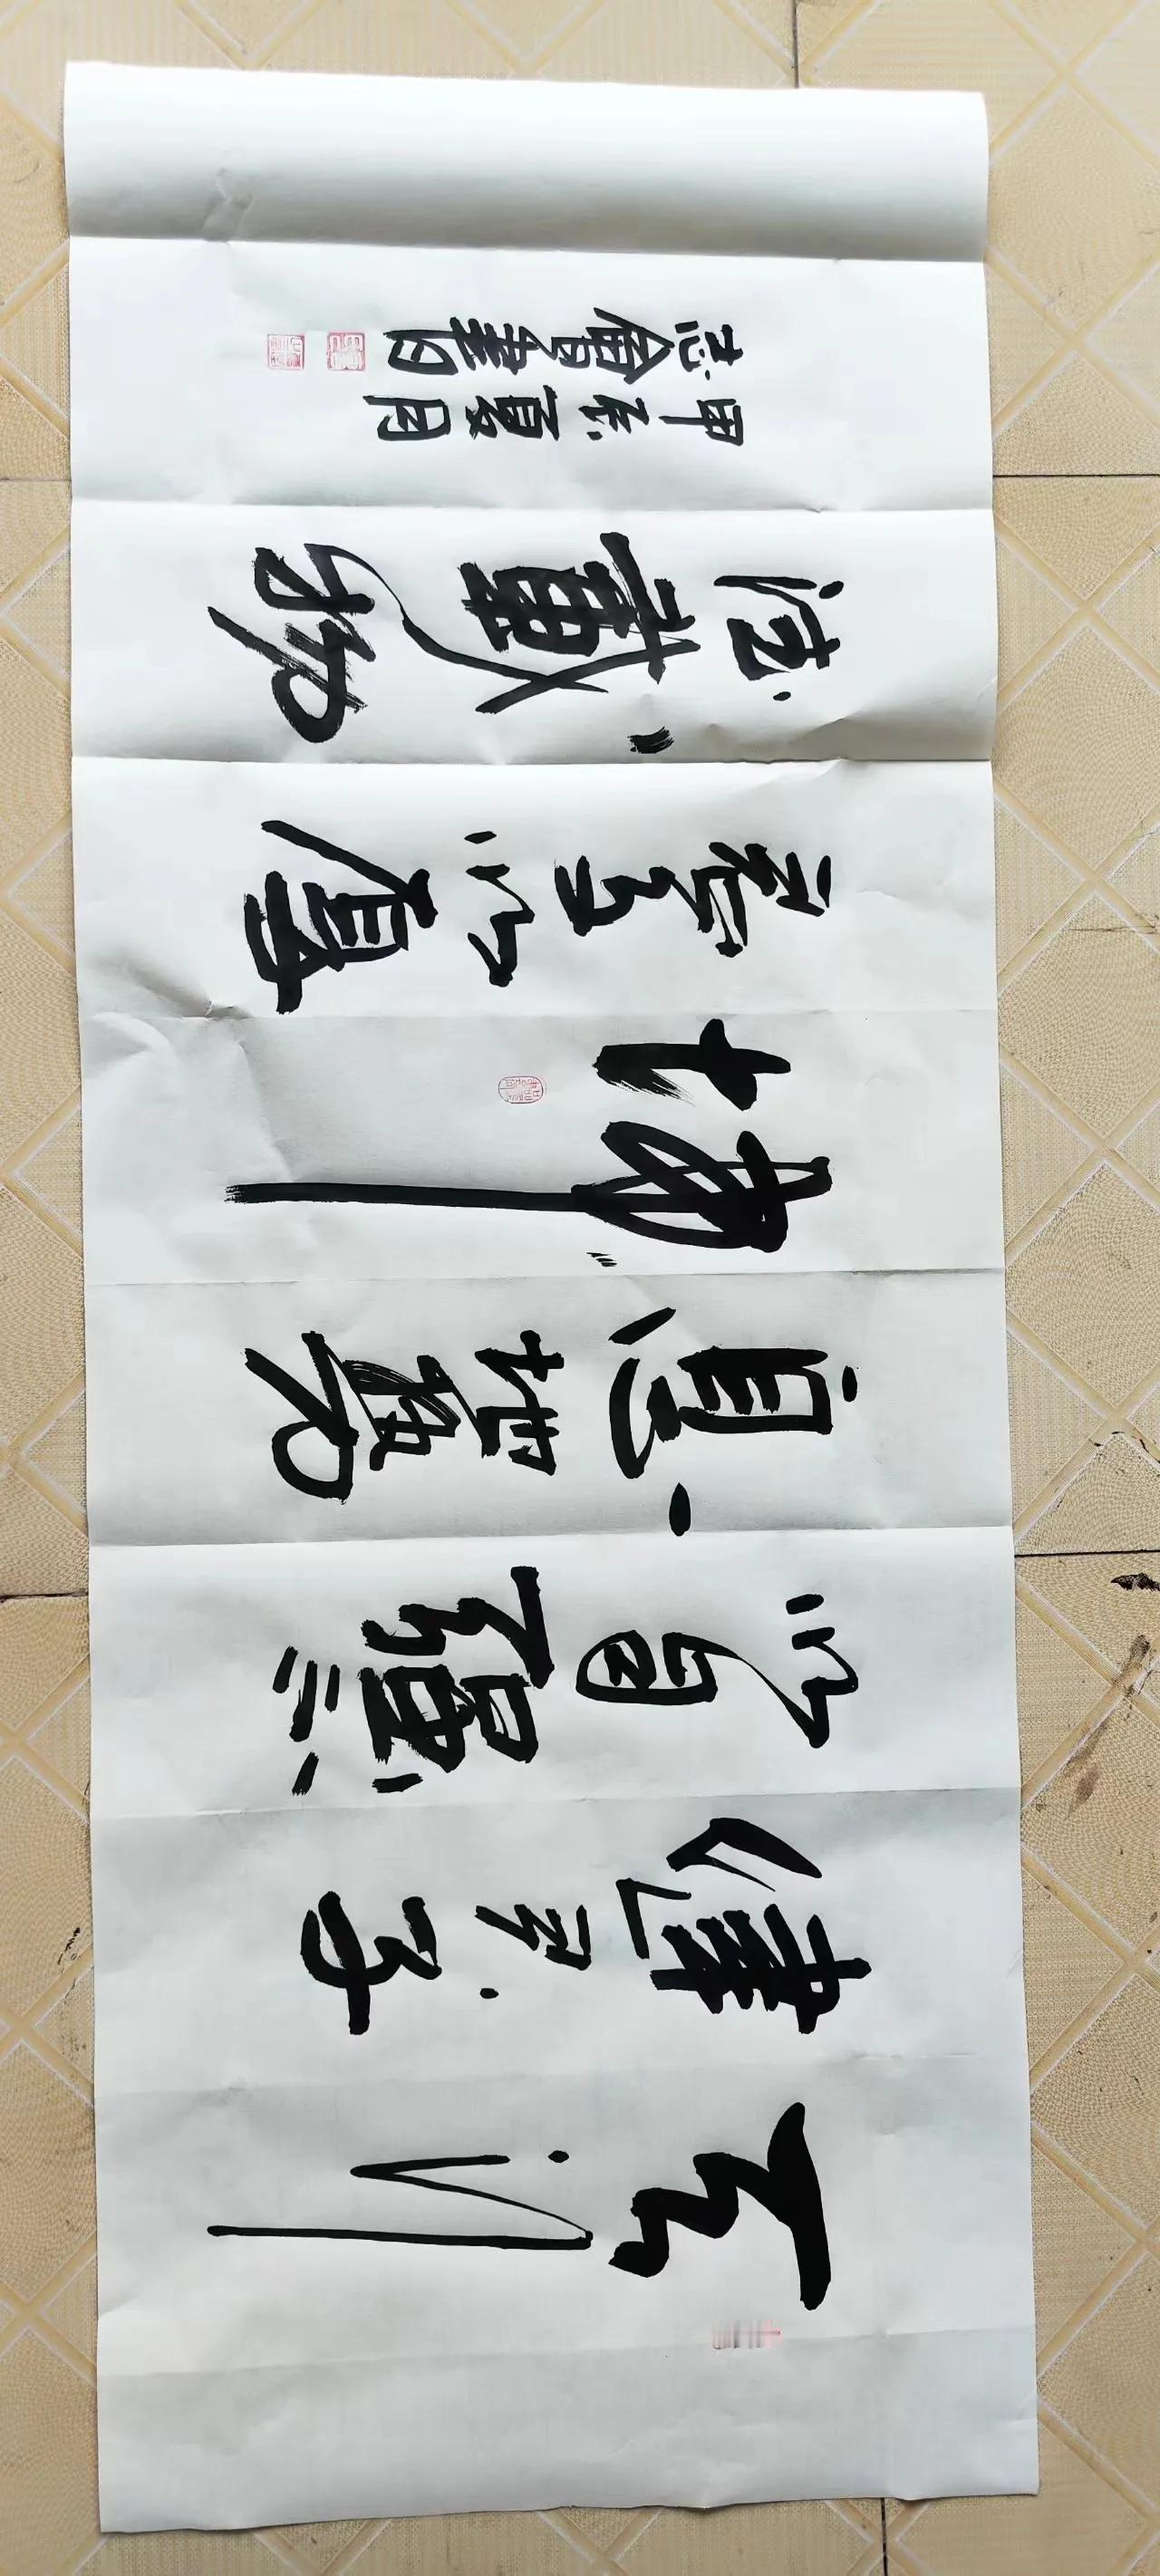 天行
健君子
以自強不
息地勢
坤
君子以厚
德載物
甲辰夏月
志會書